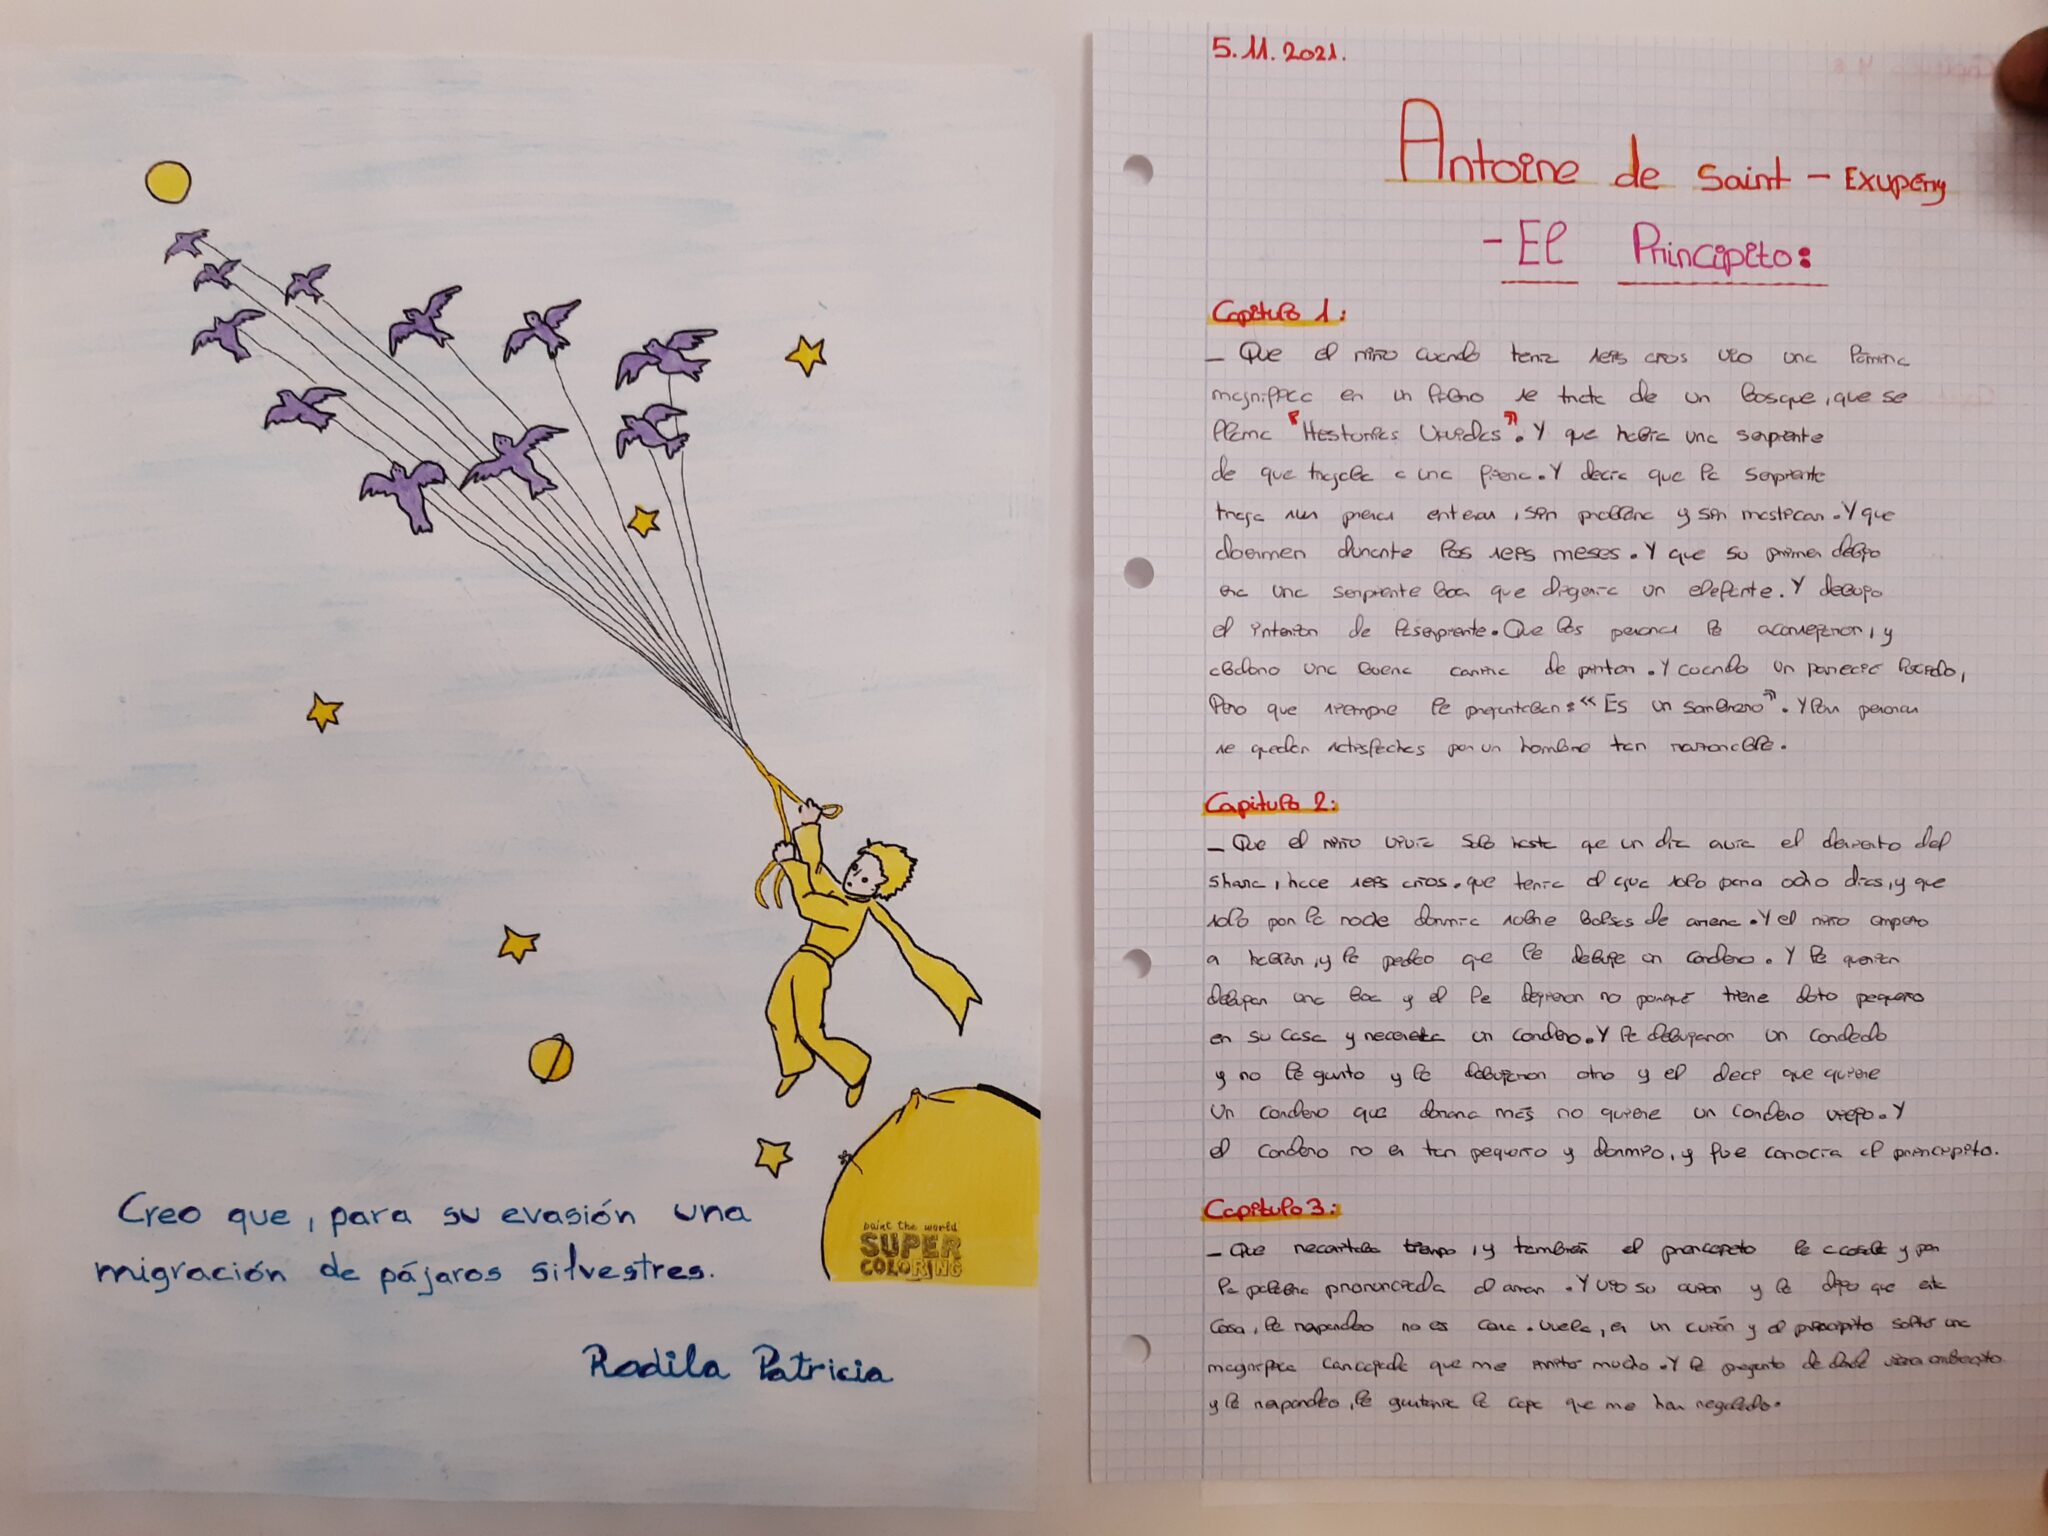 Creo que, para su evasión una
migración de pájaros silvestres.
Rodila Patricia
paint the world
SUPER
COLORING
5.11.2021.
Antoine de Saint - Exupéry
- El Principito:
Capitulo 1:
- Que el niño cuando tenia seis años vio una lámina
magnifica en un libro se trata de un bosque, que se
llama "Historias Vividas". Y que habia una serpiente
de que tragaba a una fiera. Y decia que la serpiente
traga sus presas enteras, sin problema y sin masticar. Y que
duermen durante los seis meses. Y que su primer dibujo
era una serpiente boa que digeria un elefante. Y dibujo
el interior de la serpiente. Que las personas le aconsejaron, y
una buena carrera de pintor. Y cuando un parecia lucido,
Pero que siempre le preguntaban: "Es un sombrero". Y las personas
se quedan satisfechas por un hombre tan razonable.
Capitulo 2:
- Que el niño vivia solo hasta que un dia avia el desierto del
hace seis años. que tenia el agua solo para ocho dias, y que
solo por la noche dormia sobre bolsas de arena. Y el niño empezo
a hablar, y le pedio que le dibuje un cordero. Y le
dibujan una boa y el le dijeron no porqué tiene doto pequeño
en su casa y necesita un cordero. Y le dibujaron un cordedo
y no le gusto y le dibujaron otro y el deci que quiere
Un cordero que más no quiere un cordero viejo. Y
el cordero no es tan pequeño y dormio, y fue conocia al principito.
Capitulo 3:
- Que tiempo, y tambien el principito le y por
la palabra pronunciada al azar. Y vio su avion y le dijo que
cosa, le respondio no es cosa. vuela, es un avión y el principito solto una
magnifica carcajada que me irrito mucho. Y le pregunto de
y le respondio, le gustaria la caja que me han regalado.